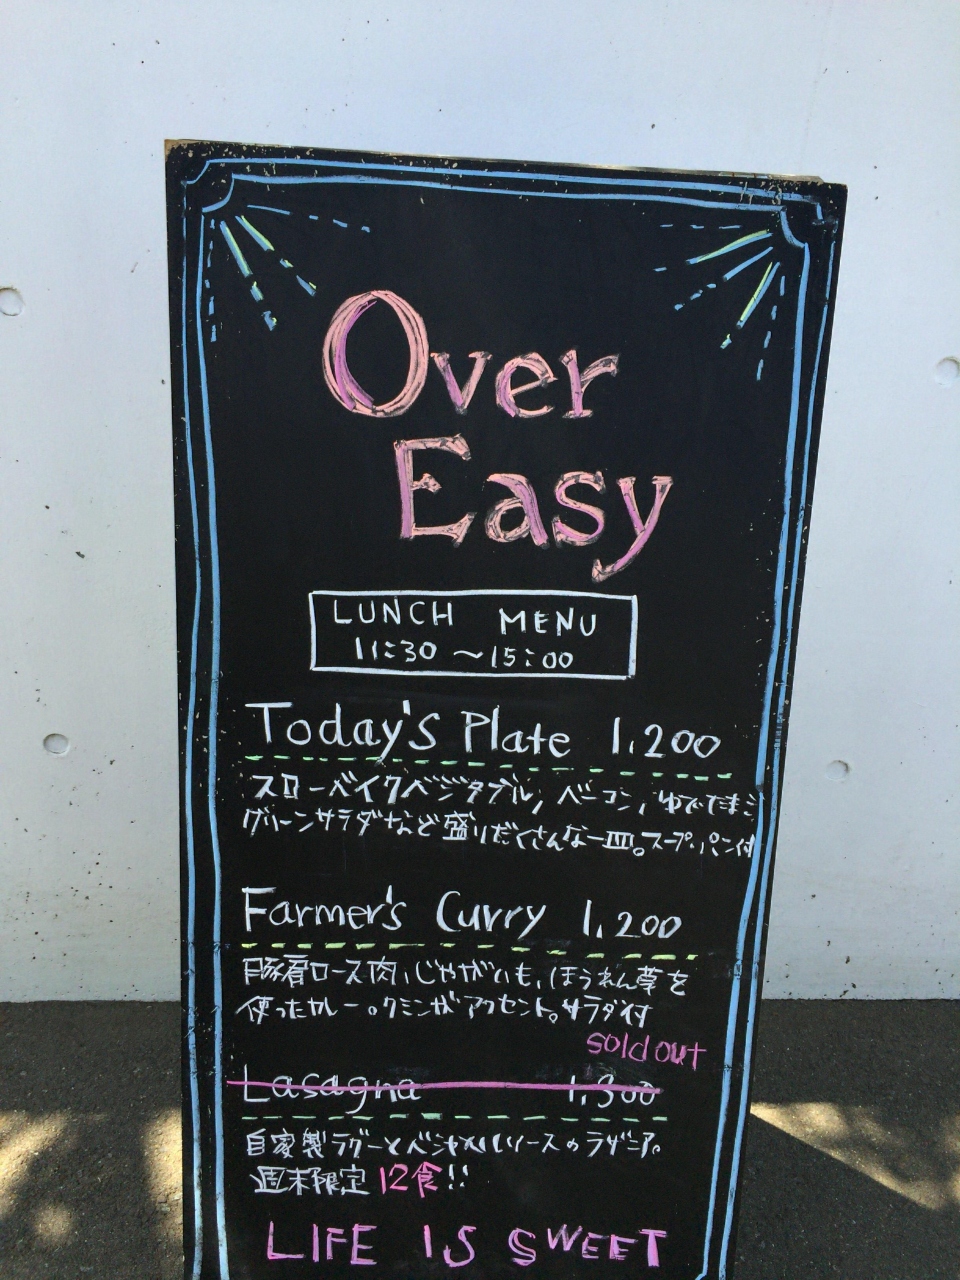 Over
Easy
LUNCH MENU
11:30 ～15:00
Today's Plate 1,200
スローベイクベジタブル, ベーコン, ゆでたまご
グリーンサラダなど盛りだくさんな一皿。スープ,パン付
Farmer's Curry 1,200
豚肩ロース肉,じゃがいも,ほうれん草を
使ったカレー。クミンがアクセント。サラダ付
sold out
Lasagna 1,300
自家製ラグーとベシャメルソースのラザニア。
週末限定 12食!!
LIFE IS SWEET